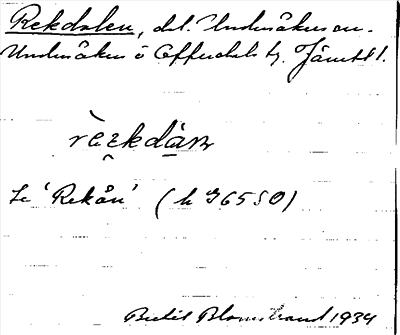 Rekdalen, del. Undersåkers sn.
Undersåkers o Offerdals tg. Jämtl.
Se 'Rekån' (h 96550)
Bertil Blomstrand 1934